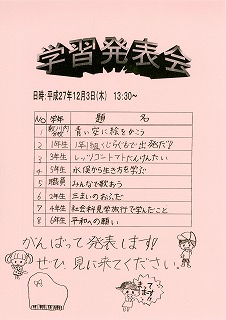 学習発表会
日時:平成27年12月3日(木) 13:30~
No 学年 題 名
1 青い空に絵をかこう
2 1年生 1年1組くじらぐもで出発だ!!
3 3年生 レッツゴントマトたんけんたい
4 5年生 水俣から生き方を学ぶ
5 職員 みんなで歌おう
6 2年生 三まいのおふだ
7 4年生 社会科見学旅行で学んだこと
8 6年生 平和への願い
がんばって発表します!!
ぜひ、見に来てください。